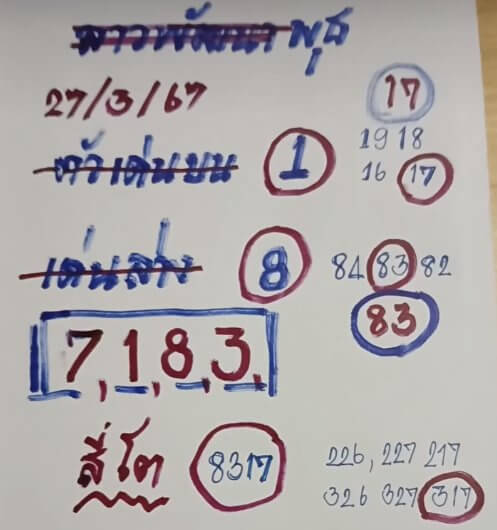 ลาวพัฒนา พุธ
27/3/67
17
19 18
ตัวเด่นบน 1
16 17
เด่นล่าง 8
84 83 82
83
7,1,8,3,
สี่โต 8317
226, 227 217
326 327 317